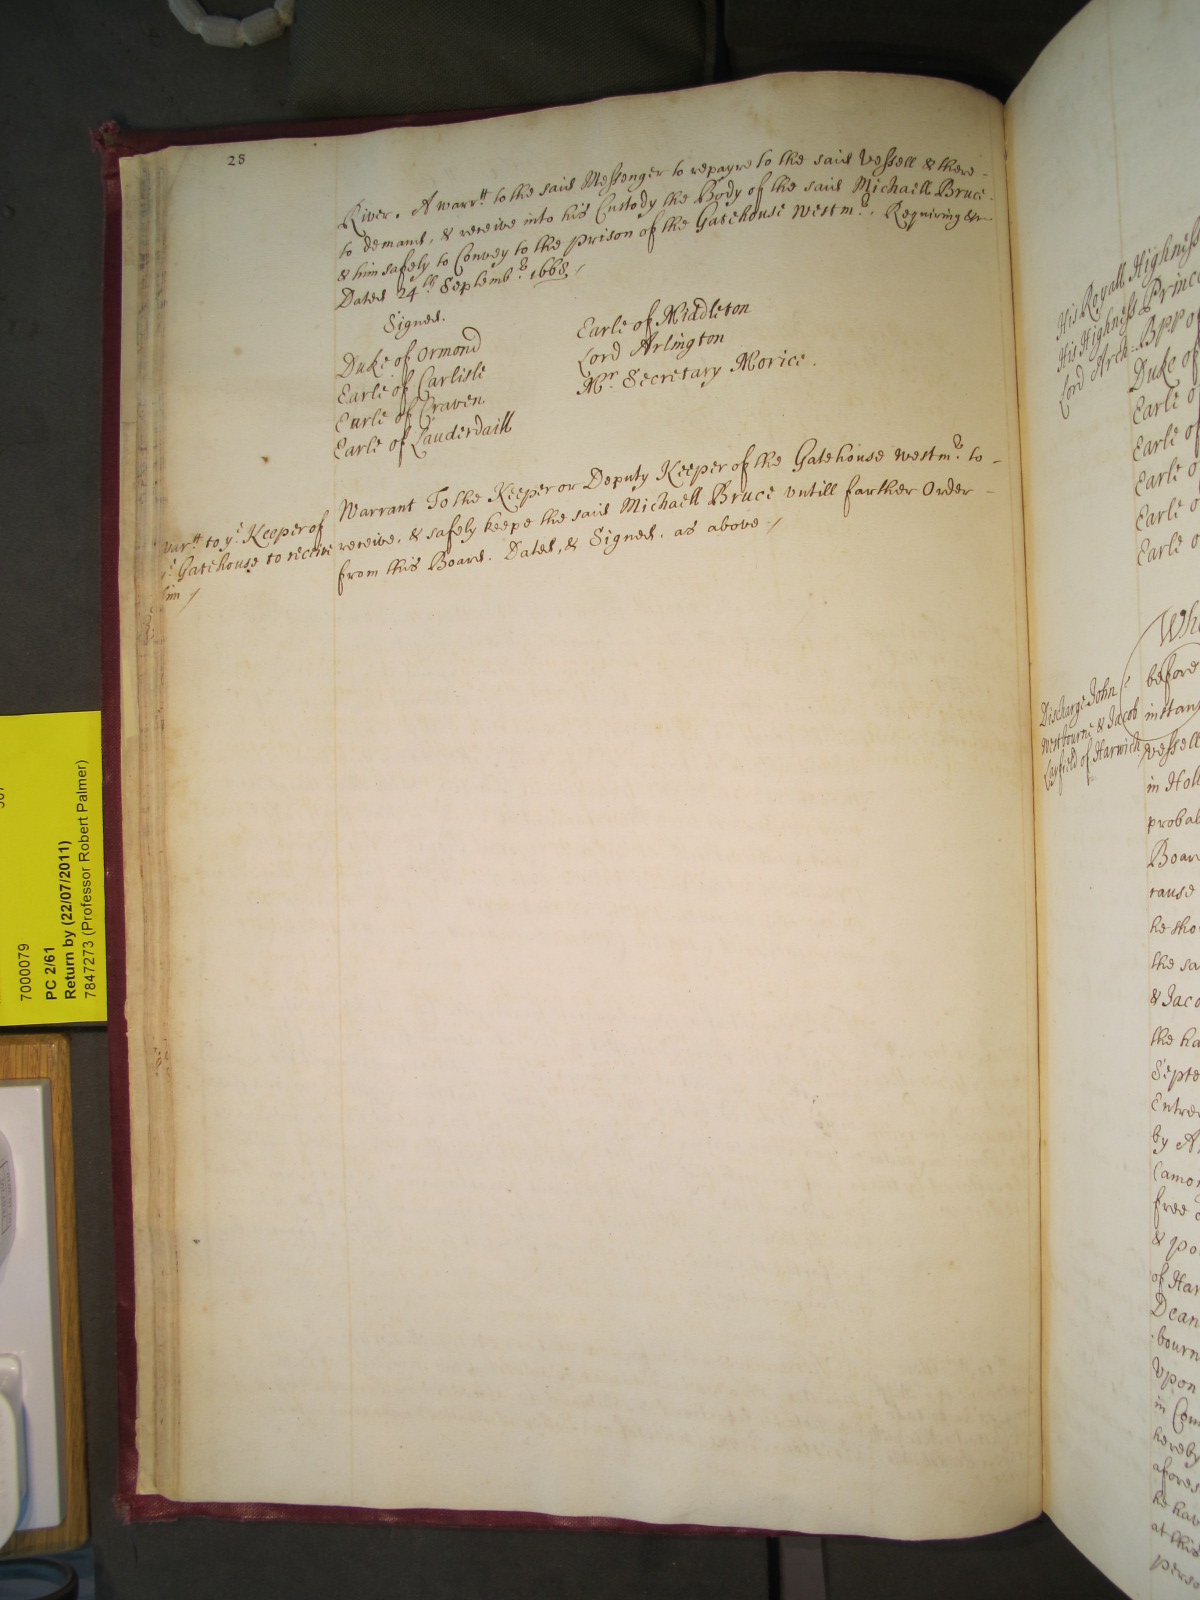 28
River. A warrtt to the said Messenger to repayre to the said Vessell & there-
to demand, & receive into his Custody the Body of the said Michaell Bruce.
& him safely to Convey to the prison of the Gatehouse westmr. Requiring &c
Dated 24th Septembr 1668 /
Signed.
Duke of Ormond
Earle of Carlisle
Earle of Craven
Earle of Lauderdaill
Earle of Middleton
Lord Arlington
Mr Secretary Morice.
Warrtt to ye Keeper of
ye Gatehouse to receive
him /
Warrant To the Keeper or Deputy Keeper of the Gatehouse westmr to -
receive, & safely keepe the said Michaell Bruce untill farther Order -
from this Board. Dated, & Signed, as above /
7000079
PC 2/61
Return by (22/07/2011)
7847273 (Professor Robert Palmer)
His Royall Highness
His Highness Prince
Lord Arch: Bpp of
Duke of
Earle o
Earle of
Earle o
Earle o
Earle o
Discharge John
Westbourne & Jacob
of Harwich
Whe
before
instan
vessell
in Holl
probab
Boar
cause
he sho
the sa
& Jaco
the ha
Septe
Entred
by A
(amo
free
& po
of Har
Dean
bourn
Upon
in Com
hereby
afores
he hav
at this
perso